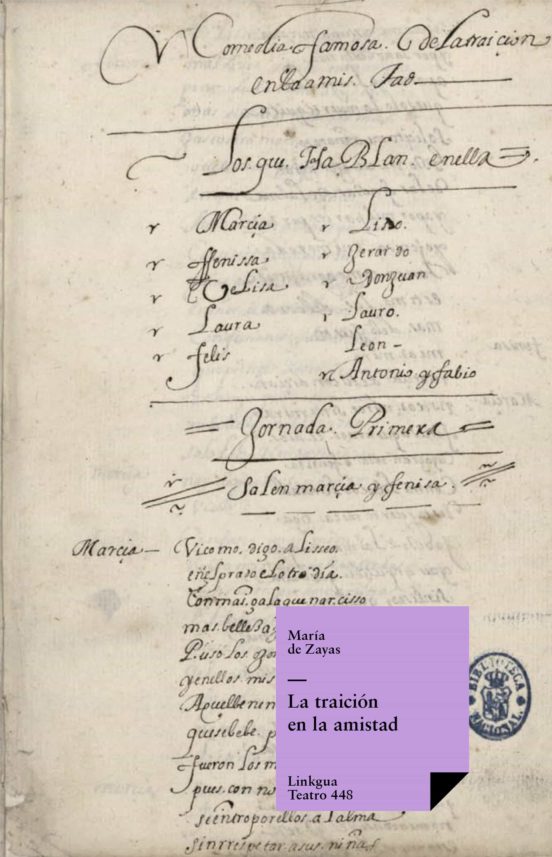 Comedia famosa. de la traicion
en la amis. tad
Los que. Hablan. en ella
Marcia
ffenissa
Belisa
Laura
felis
Liso.
Zerardo
Don Juan
Lauro.
Leon -
Antonio y fabio
Jornada. Primera
Salen marcia y fenisa.
Marcia – Vi como. digo. a Lisseo.
en el prado el otro dia.
Con mas. gala que narcisso
mas. belleça
Puso los
y en ellos mis
que se bebe. p
fueron los m
pues. con no
si entro por ellos. a l alma
sin rrespetar. a sus niñas
María
de Zayas
—
La traición
en la amistad
Linkgua
Teatro 448
BIBLIOTECA
NACIONAL